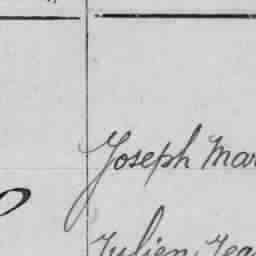 Joseph Mar
Julien Jea